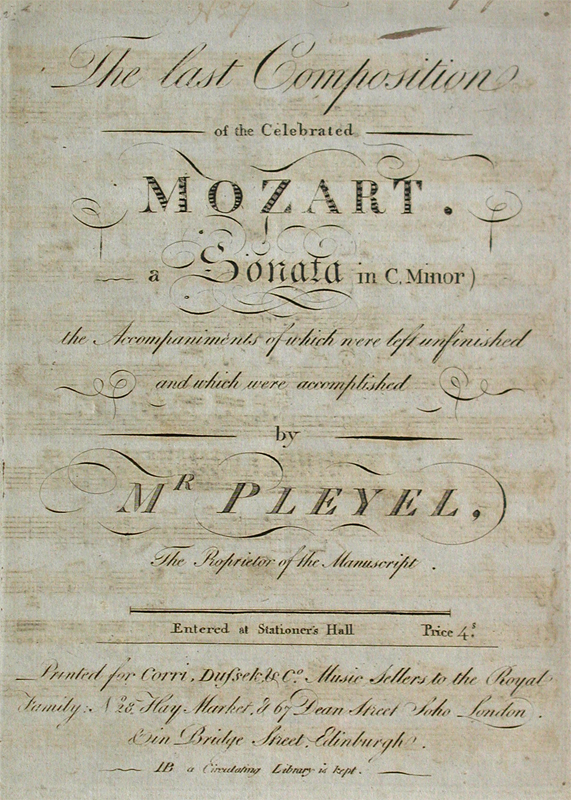 The last Composition
of the Celebrated
MOZART.
a Sonata in C. Minor)
the Accompaniments of which were left unfinished
and which were accomplished
by
MR PLEYEL,
The Proprietor of the Manuscript.
Entered at Stationer's Hall Price 4s.
Printed for Corri, Dussek & Co. Music Sellers to the Royal
Family. No. 28. Hay Market, & 67 Dean Street Soho London.
& in Bridge Street, Edinburgh.
NB a Circulating Library is kept.